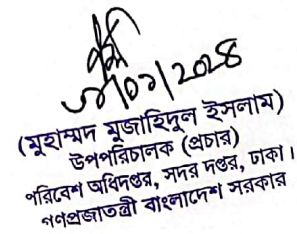 (মুহাম্মদ মুজাহিদুল ইসলাম)
উপপরিচালক (প্রচার)
পরিবেশ অধিদপ্তর, সদর দপ্তর, ঢাকা।
গণপ্রজাতন্ত্রী বাংলাদেশ সরকার